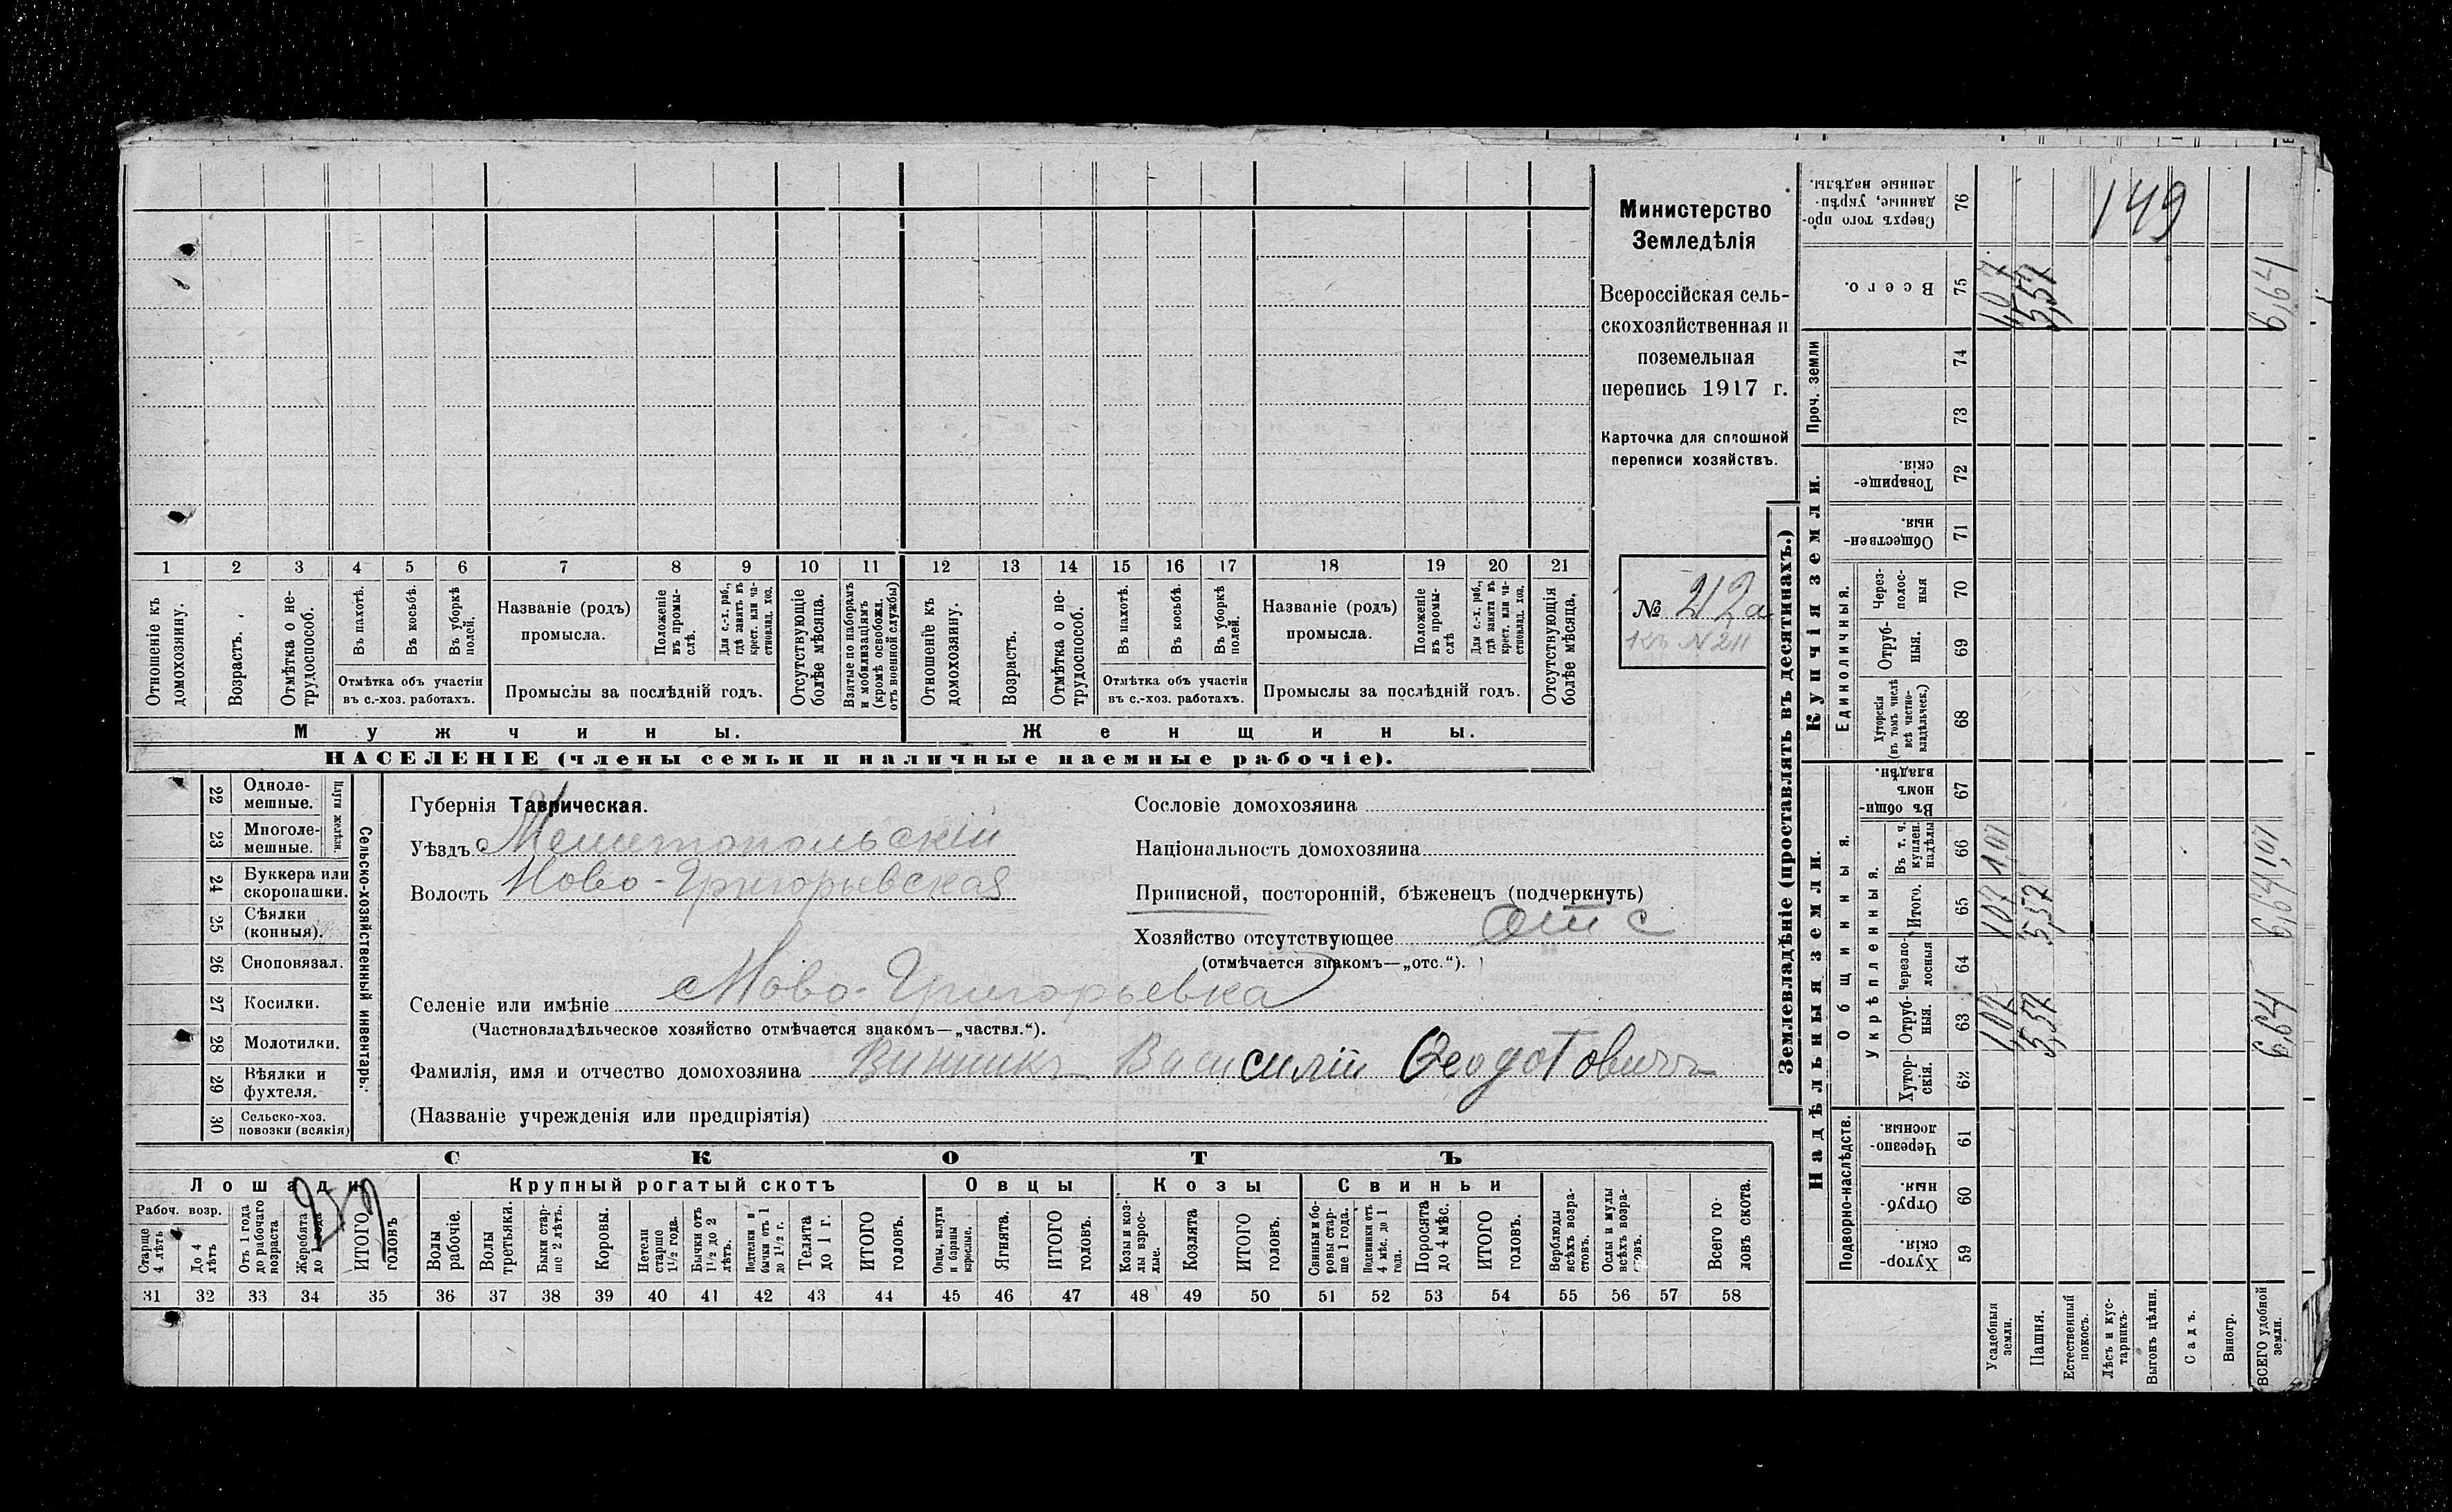 Министерство
Земледѣлія
Всероссійская сель-
скохозяйственная и
поземельная
перепись 1917 г.
Карточка для сплошной
переписи хозяйствъ.
№ 212а
къ N 211
1 2 3 4 5 6 7 8 9 10 11 12 13 14 15 16 17 18 19 20 21
Отношеніе къ домохозяину.
Возрастъ.
Отмѣтка о не-трудоспособ.
Въ пахотѣ.
Въ косьбѣ.
Въ уборкѣ полей.
Отмѣтка объ участіи
въ с.-хоз. работахъ.
Названіе (родъ)
промысла.
Положеніе въ промы-слѣ.
Для с.-х. раб., гдѣ занятъ въ крест. или ча-стновлад. хоз.
Промыслы за послѣдній годъ.
Отсутствующіе болѣе мѣсяца.
Взятые по наборамъ и мобилизаціямъ (кромѣ освобожд. отъ военной службы)
Отношеніе къ домохозяину.
Возрастъ.
Отмѣтка о не-трудоспособ.
Въ пахотѣ.
Въ косьбѣ.
Въ уборкѣ полей.
Отмѣтка объ участіи
въ с.-хоз. работахъ.
Названіе (родъ)
промысла.
Положеніе въ промы-слѣ
Для с.-х. раб., гдѣ занята въ крест. или ча-стновлад. хоз.
Промыслы за послѣдній годъ.
Отсутствующія болѣе мѣсяца.
Мужчины.
Женщины.
НАСЕЛЕНІЕ (члены семьи и наличные наемные рабочіе).
22 Одноле-мешные.
23 Многоле-мешные.
Плуги желѣзн.
24 Буккера или скоропашки.
25 Сѣялки (конныя).
26 Сноповязал.
27 Косилки.
28 Молотилки.
29 Вѣялки и фухтеля.
30 Сельско-хоз. повозки (всякія)
Сельско-хозяйственный инвентарь.
Губернія Таврическая.
Уѣздъ Мелитопольскій
Волость Ново-Григорьевская
Селеніе или имѣніе Ново-Григорьевка
(Частновладѣльческое хозяйство отмѣчается знакомъ—„частвл.“).
Фамилія, имя и отчество домохозяина Винникъ Василій Ѳеодотовичъ
(Названіе учрежденія или предпріятія)
Сословіе домохозяина
Національность домохозяина
Приписной, посторонній, бѣженецъ (подчеркнуть)
Хозяйство отсутствующее отс
(отмѣчается знакомъ—„отс.“).
СКОТЪ
Лошади
Крупный рогатый скотъ
Овцы
Козы
Свиньи
Рабоч. возр.
Старше 4 лѣтъ
До 4 лѣтъ
Отъ 1 года до рабочаго возраста
Жеребята до 1 года
ИТОГО головъ
Волы рабочіе.
Волы третьяки.
Быки стар-ше 2 лѣтъ.
Коровы.
Нетели старше 1½ года.
Бычки отъ 1½ до 2 лѣтъ.
Подтелки и бычки отъ 1 до 1½ г.
Телята до 1 г.
ИТОГО головъ.
Овцы, валухи и бараны взрослые.
Ягнята.
ИТОГО головъ.
Козы и коз-лы взрос-лые.
Козлята
ИТОГО головъ.
Свиньи и бо-ровы стар-ше 1 года.
Подсвинки отъ 4 мѣс. до 1 года.
Поросята до 4 мѣс.
ИТОГО головъ.
Верблюды всѣхъ возра-стовъ.
Ослы и мулы всѣхъ возра-стовъ.
Всего го-ловъ скота.
31 32 33 34 35 36 37 38 39 40 41 42 43 44 45 46 47 48 49 50 51 52 53 54 55 56 57 58
Землевладѣніе (проставлять въ десятинахъ.)
Надѣльныя земли.
Купчія земли.
Проч. земли
Подворно-наслѣдств.
Общинныя.
Укрѣпленныя.
Единоличныя.
59 Хутор-скія.
60 Отруб-ныя.
61 Черезпо-лосныя
62 Хутор-скія.
63 Отруб-ныя. 1,07 5,57 6,64
64 Черезпо-лосныя
65 Итого. 1,07 5,57 6,64
66 Въ т. ч. куплен. надѣлы 1,07 1,07
67 Въ общи-номъ владѣн.
68 Хуторскія (въ томъ числѣ всѣ частно-владѣльческ.)
69 Отруб-ныя.
70 Через-полос-ныя
71 Обществен-ныя.
72 Товарище-скія.
73
74
75 Всего. 1,07 5,57 6,64
76 Сверхъ того про-данные, укрѣп-ленные надѣлы.
149
Усадебныя земли.
Пашня.
Естественный покосъ.
Лѣсъ и кус-тарникъ.
Выгонъ цѣлин.
Садъ.
Виногр.
ВСЕГО удобной земли.